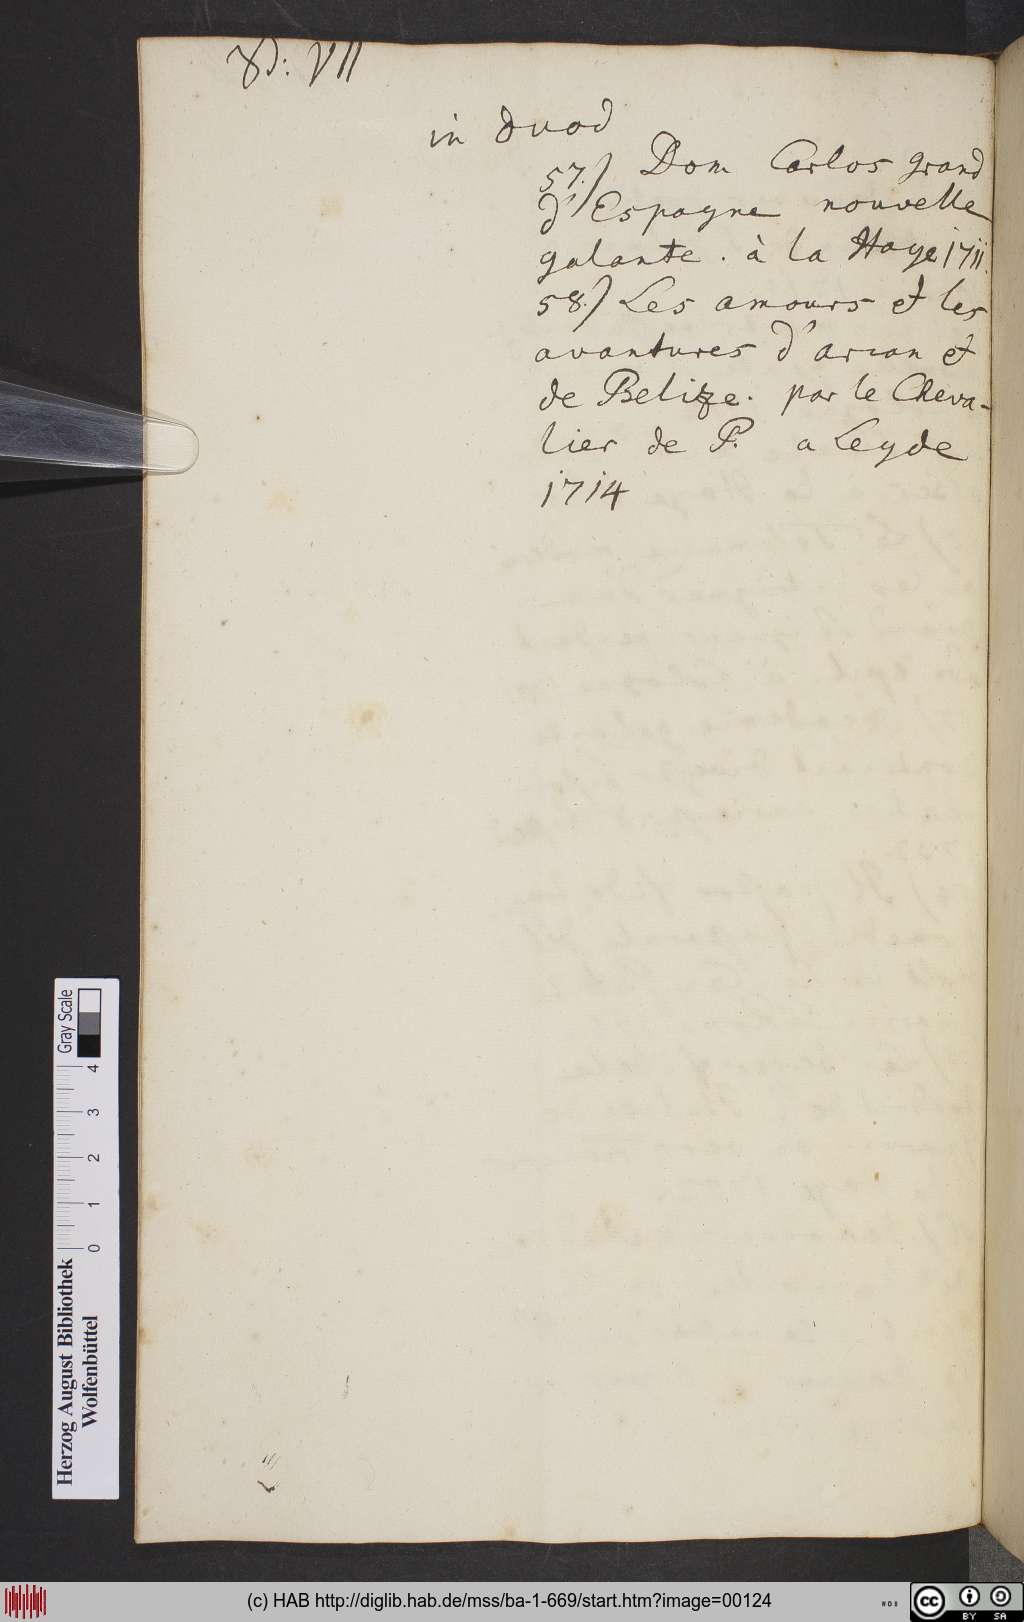 VII
in duod
57.) Dom Carlos grand
d'Espagne nouvelle
galante. à la Haye 1711.
58.) Les amours et les
avantures d'arcan et
de Belize. par le Cheva-
lier de P. a Leyde
1714
Gray Scale
4
3
2
1
0
Herzog August Bibliothek
Wolfenbüttel
(c) HAB http://diglib.hab.de/mss/ba-1-669/start.htm?image=00124
WDB
cc
BY SA